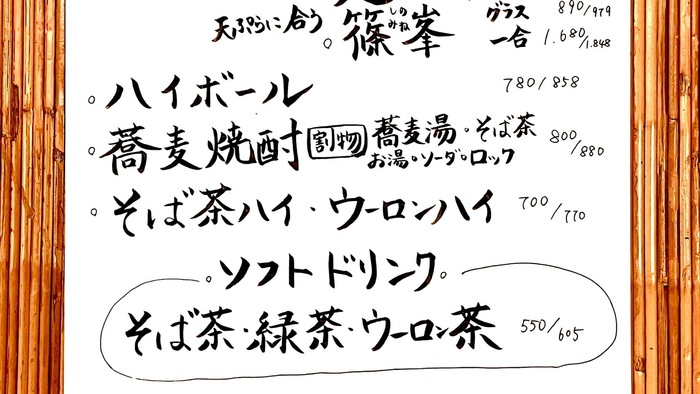 天ぷらに合う 篠峯 しのみね グラス 890/979
一合 1.680/1.848
ハイボール 780/858
蕎麦焼酎 割物 蕎麦湯・そば茶 800/880
お湯・ソーダ・ロック
そば茶ハイ・ウーロンハイ 700/770
ソフトドリンク
そば茶・緑茶・ウーロン茶 550/605